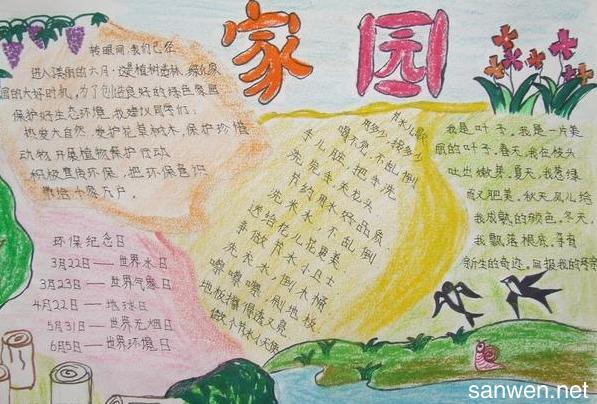 家园
转眼间,我们已经
进入美丽的六月,这是植树造林、绿化家
园的大好时机,为了创造良好的绿色家园
保护好生态环境,我建议同学们:
热爱大自然,爱护花草树木,保护珍惜
动物,开展植物保护行动
积极宣传环保,把环保意识
带给千家万户。
环保纪念日
3月22日——世界水日
3月23日——世界气象日
4月22日——地球日
5月31日——世界无烟日
6月5日——世界环境日
节水儿歌
用多少,接多少
喝不完,不乱倒
手儿脏,把手洗
洗完手,关龙头
节约用水好品质
洗米水,不乱倒
送给花儿花更美
争做节水小卫士
洗衣水,倒水桶
唰唰唰,刷地板
地板擦得透又亮
做个节水小天使
我是叶子。我是一片美
丽的叶子。春天,我在枝头
吐出嫩芽。夏天,我葱绿
而又肥美。秋天,风儿给
我成熟的颜色。冬天,
我飘落根底,孕育
新生的奇迹。回报我的
sanwen.net